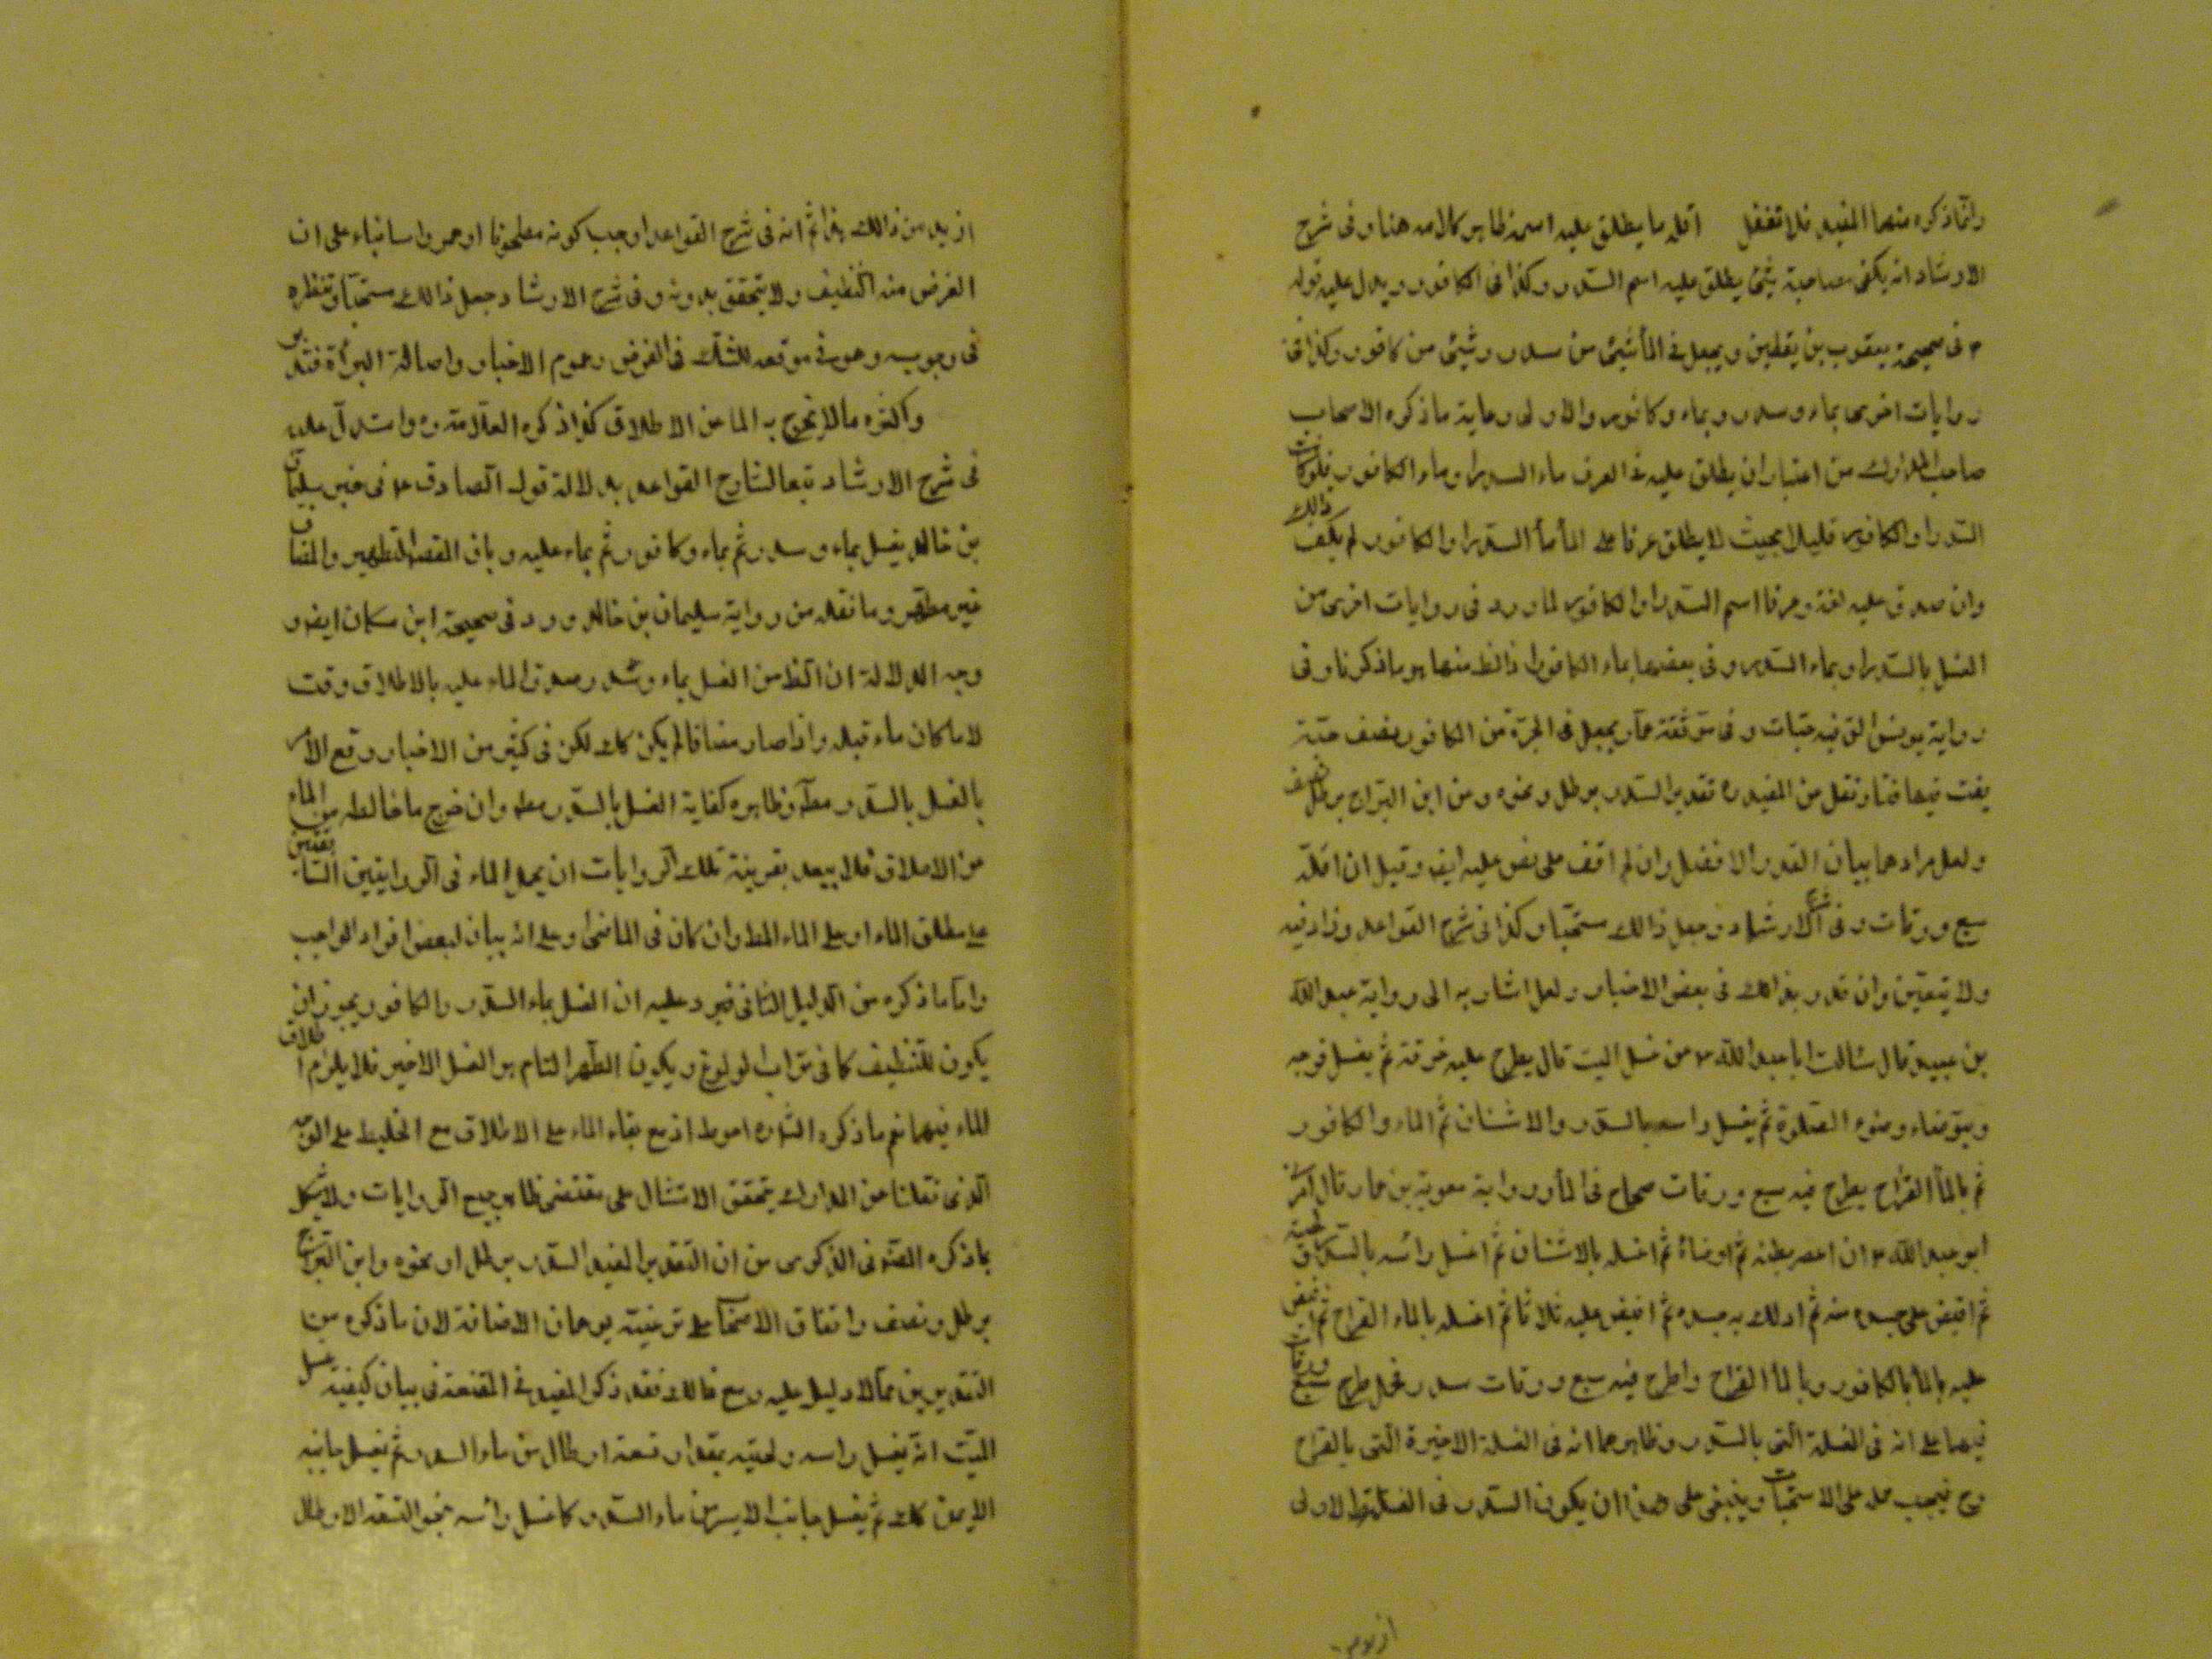 وانما ذكره منهما المفيد فلا تغفل اقله ما يطلق عليه اسمه ظاهر كلامه هنا وفى شرح
الارشاد انه يكفى مصاحبة شئ يطلق عليه اسم السدر وكذا فى الكافور ويدل عليه قوله
ع فى صحيحة يعقوب بن يقطين ويجعل فى الماء شئ من سدر وشئ من كافور وكذا فى
روايات اخرى بماء وسدر وبماء وكافور والاولى رعاية ما ذكره الاصحاب
صاحب المدارك من اعتبار ان يطلق عليه فى العرف ماء السدر او ماء الكافور فلو كانت
السدر او الكافور قليلا بحيث لا يطلق عرفا على الماء ماء السدر او الكافور لم يكف ذالك
وان صدق عليه لغة وعرفا اسم السدر او الكافور لما ورد فى روايات اخرى من
الغسل بالسدر او بماء السدر وفى بعضها بماء الكافور اذ الظ منها هو ما ذكرنا وفى
رواية يونس الق فيه حبات وفى موثقة عمار يجعل فى الجرة من الكافور نصف حبة
يفت فيها فتا ونقل من المفيد ره تقدير السدر برطل ونحوه ومن ابن البراج برطل ونصف
ولعل مرادهما بيان القدر الافضل وان لم اقف على نص عليه ايض وقيل ان اقله
سبع ورقات وفى شرح الارشاد وجعل ذالك مستحبا وكذا فى شرح القواعد وزاد فيه
ولا يتعين وان قدر بذالك فى بعض الاخبار ولعل اشار به الى رواية عبد الله
بن عبيد قال سالت ابا عبد الله ع من غسل الميت قال يطرح عليه خرقة ثم يغسل فرجه
ويتوضاء وضوء الصلوة ثم يغسل راسه بالسدر والاشنان ثم الماء والكافور
ثم بالماء القراح يطرح فيه سبع ورقات صحاح فى الماء ورواية معوية بن عمار قال امرنى
ابو عبد الله ع ان اعصر بطنه ثم اوضاه ثم اغسله بالاشنان ثم اغسل رائسه بالسدر ولحيته
ثم افيض على جسده منه ثم ادلك به جسده ثم افيض عليه ثلاثا ثم اغسله بالماء القراح ثم افيض
عليه بالماء بالكافور وبالماء القراح واطرح فيه سبع ورقات سدر طرح سبع ورقات
فيها على انه فى الغسلة التى بالسدر وظاهرهما انه فى الغسلة الاخيرة التى بالقراح
وح فيجب حمله على الاستحباب وينبغى على هذا ان يكون السدر فى الغسلة الاولى
ازيد من
ازيد من ذالك هذا ثم انه فى شرح القواعد اوجب كونه مطحونا او ممروسا بناء على ان
الغرض منه التنظيف ولا يتحقق بدونه وفى شرح الارشاد جعل ذالك مستحبا وتنظر
فى وجوبه وهو فى موقعه للشك فى الغرض وعموم الاخبار واصالة البرائة فتدبر
واكثره ما لا يخرج به الماء عن الاطلاق كذا ذكره العلامة ره واستدل عليه
فى شرح الارشاد تبعا لشارح القواعد بدلالة قول الصادق ع فى خبر سليمان
بن خالد يغسل بماء وسدر ثم بماء وكافور ثم بماء عليه وبان المقصد التطهير والمضاف
غير مطهر وما نقله من رواية سليمان بن خالد ورد فى صحيحة ابن مسكان ايض و
وجه الدلالة ان الظ من الغسل بماء وسدر صدق الماء عليه بالاطلاق وقت
لا ما كان ماء قبله واذا صار مضافا لم يكن كك لكن فى كثير من الاخبار وقع الامر
بالغسل بالسدر مط وظاهره كفاية الغسل بالسدر مط وان خرج ما خالطه من الماء
عن الاطلاق فلا يبعد بقرينة تلك الروايات ان يحمل الماء فى الروايتين السابقتين
على مطلق الماء او على الماء المط وان كان فى الماضى او على انه بيان لبعض افراد الواجب
واما ما ذكره من الدليل الثانى فيرد عليه ان الغسل بماء السدر والكافور يجوز ان
يكون للتنظيف كما فى تراب الولوغ ويكون الطهر التام هو الغسل الاخير فلا يلزم اطلاق
الماء فيهما نعم ما ذكره الش ره احوط اذ مع بقاء الماء على الاطلاق مع الخليط على الوجه
الذى نقلنا عن المدارك يتحقق الامتثال على مقتضى ظاهر جميع الروايات ولا يشكل
بما ذكره المص فى الذكرى من ان التقدير المفيد السدر برطل او نحوه وابن البراج
برطل ونصف واتفاق الاصحاب على ترغيته يوهمان الاضافة لان ما ذكره من
التقديرين مما لا دليل عليه ومع ذالك فقد ذكر المفيد فى المقنعة فى بيان كيفية غسل
الميت انه يغسل راسه ولحيته بمقدار تسعة ارطال من ماء السدر ثم يغسل جانبه
الايمن كك ثم يغسل جانب الايسر من ماء السدر كما غسل رائسه بنحو التسعة الارطال